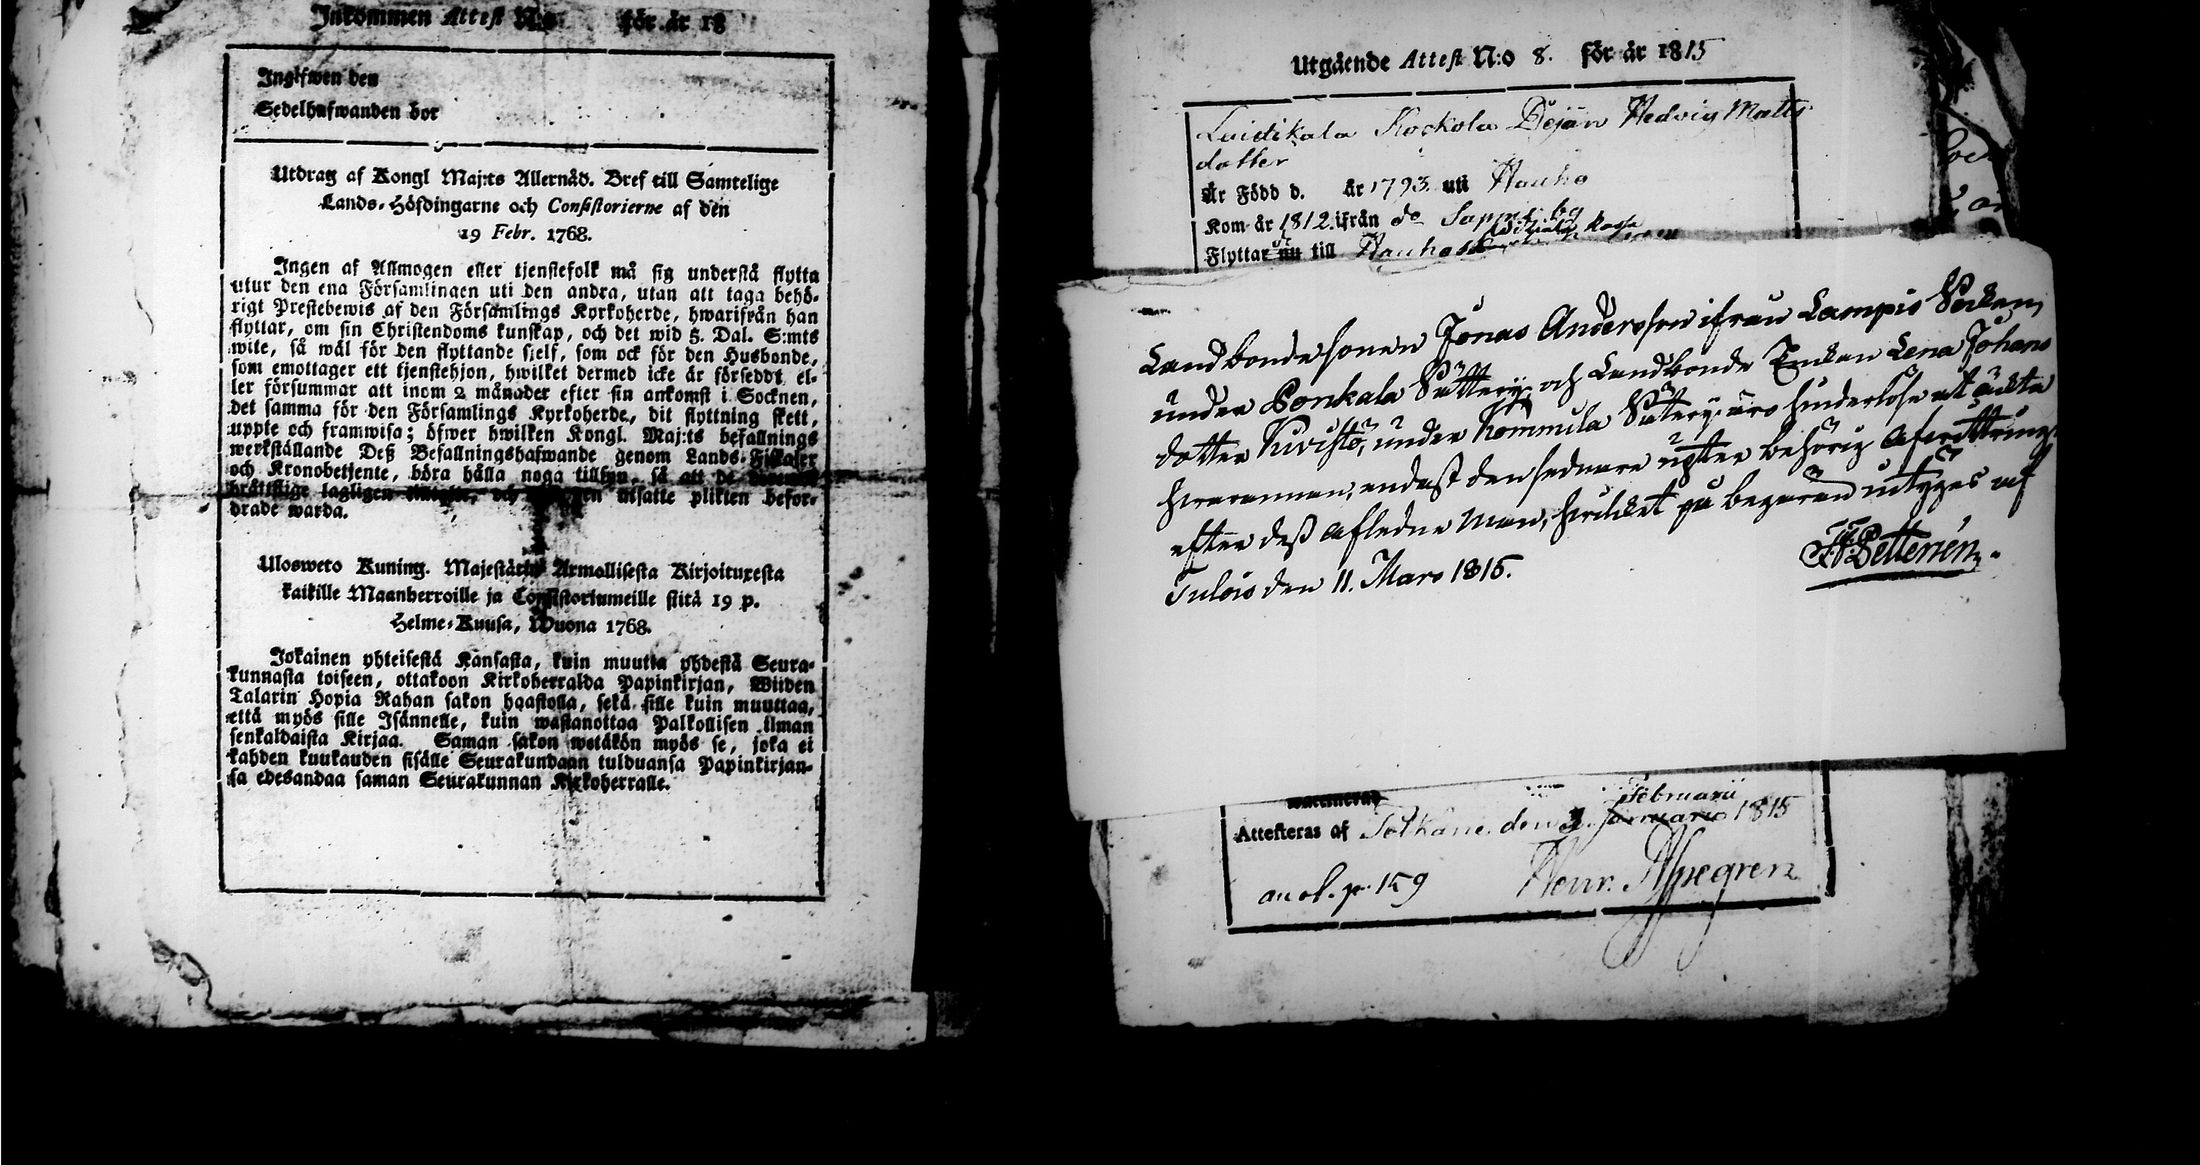 Inkommen Attest N:o för år 18
Ingifwen den
Sedelhafwanden bor
Utdrag af Kongl Maj:ts Allernåd. Bref till Samtelige
Lands-Höfdingarne och Consistorierne af den
19 Febr. 1768.
Ingen af Allmogen eller tjenstefolk må sig understå flytta
utur den ena Församlingen uti den andra, utan att taga behö-
rigt Prestebewis af den Församlings Kyrkoherde, hwarifrån han
flyttar, om sin Christendoms kunskap, och det wid 5. Dal. S:mts
wite, så wäl för den flyttande sjelf, som ock för den Husbonde,
som emottager ett tjenstehjon, hwilket dermed icke är försedt, el-
ler försummar att inom 2 månader efter sin ankomst i Socknen,
det samma för den Församlings Kyrkoherde, dit flyttning skett,
uppte och framwisa; öfwer hwilken Kongl. Maj:ts befallnings
werkställande Deß Befallningshafwande genom Lands-Fiskaler
och Kronobetjente, böra hålla noga tillsyn, så att de
bråttslige lagligen och utsatte plikten befor-
drade warda.
Ulosweto Kuning. Majestätin Armollisesta Kirjoituxesta
kaikille Maanherroille ja Consistoriumeille siitä 19 p.
Helme-Kuusa, Wuona 1768.
Jokainen yhteisestä Kansasta, kuin muutta yhdestä Seura-
kunnasta toiseen, ottakoon Kirkoherralda Papinkirjan, Wiiden
Talarin Hopia Rahan sakon haastolla, sekä sille kuin muuttaa,
että myös sille Isännelle, kuin wastanottaa Palkollisen ilman
senkaldaista Kirjaa. Saman sakon wetäkön myös se, joka ei
kahden kuukauden sisälle Seurakundaan tulduansa Papinkirjan-
sa edesandaa saman Seurakunnan Kirkoherralle.
Utgående Attest N:o 8. för år 1815
Luistikala Kockola Dejan Hedvig Matts
dotter
Är Född d. år 1793. uti Hauho
Kom år 1812. ifrån do
Flyttar nu till Hauho
Landbondesonen Jonas Andersson ifrån Lampis Socken,
under Porkala Säteri, och Landbonde Enkan Lena Johans
dotter Kuvistö, under Kommila Säteri, äro hinderlöse att äckta
hvarannan, endast den sednare njuter behörig afvittring
efter deß afledne Man, hvilket på begäran intygas af
Tulois den 11. Mars 1815. Petterién.
Attesteras af den 3. Januarii Februarii 1815
an ol. p. 159 Henr. Alhegren